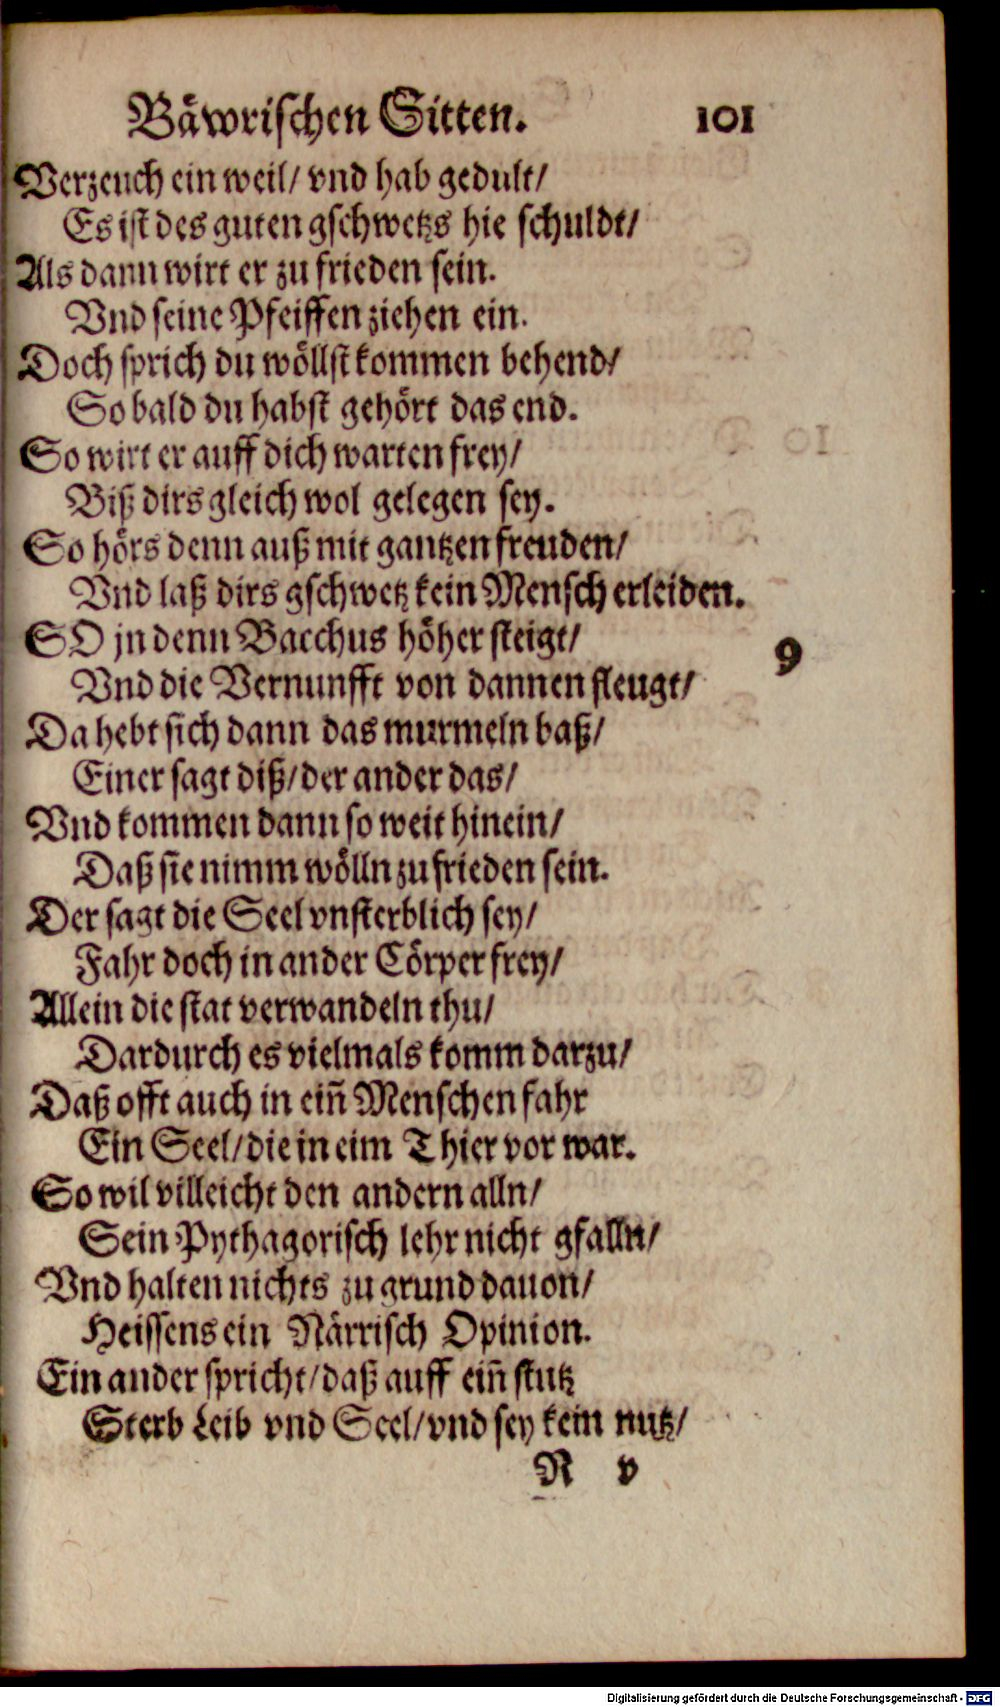 Bäwrischen Sitten. 101
Verzeuch ein weil/ vnd hab gedult/
Es ist des guten gschwetzs hie schuldt/
Als dann wirt er zu frieden sein.
Vnd seine Pfeiffen ziehen ein.
Doch sprich du wöllst kommen behend/
So bald du habst gehört das end.
So wirt er auff dich warten frey/
Biß dirs gleich wol gelegen sey.
So hörs denn auß mit gantzen freuden/
Vnd laß dirs gschwetz kein Mensch erleiden.
SO jn denn Bacchus höher steigt/
9
Vnd die Vernunfft von dannen fleugt/
Da hebt sich dann das murmeln baß/
Einer sagt diß/ der ander das/
Vnd kommen dann so weit hinein/
Daß sie nimm wölln zu frieden sein.
Der sagt die Seel vnsterblich sey/
Fahr doch in ander Cörper frey/
Allein die stat verwandeln thu/
Dardurch es vielmals komm darzu/
Daß offt auch in ein̄ Menschen fahr
Ein Seel/ die in eim Thier vor war.
So wil villeicht den andern alln/
Sein Pythagorisch lehr nicht gfalln/
Vnd halten nichts zu grund dauon/
Heissens ein Närrisch Opinion.
Ein ander spricht/ daß auff ein̄ stutz
Sterb Leib vnd Seel/ vnd sey kein nutz/
R v
Digitalisierung gefördert durch die Deutsche Forschungsgemeinschaft - DFG